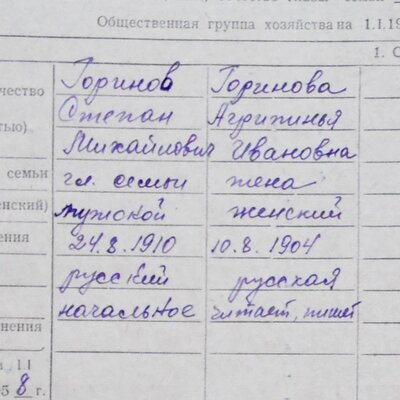 Общественная группа хозяйства на 1.I.19
1. С
чество Горинов Горинова
Степан Агрипинья
тью) Михайлович Ивановна
семьи гл. семьи жена
енский) мужской женский
ения 24.8.1910 10.8.1904
русский русская
начальное читает, пишет
нения
1.I
58 г.